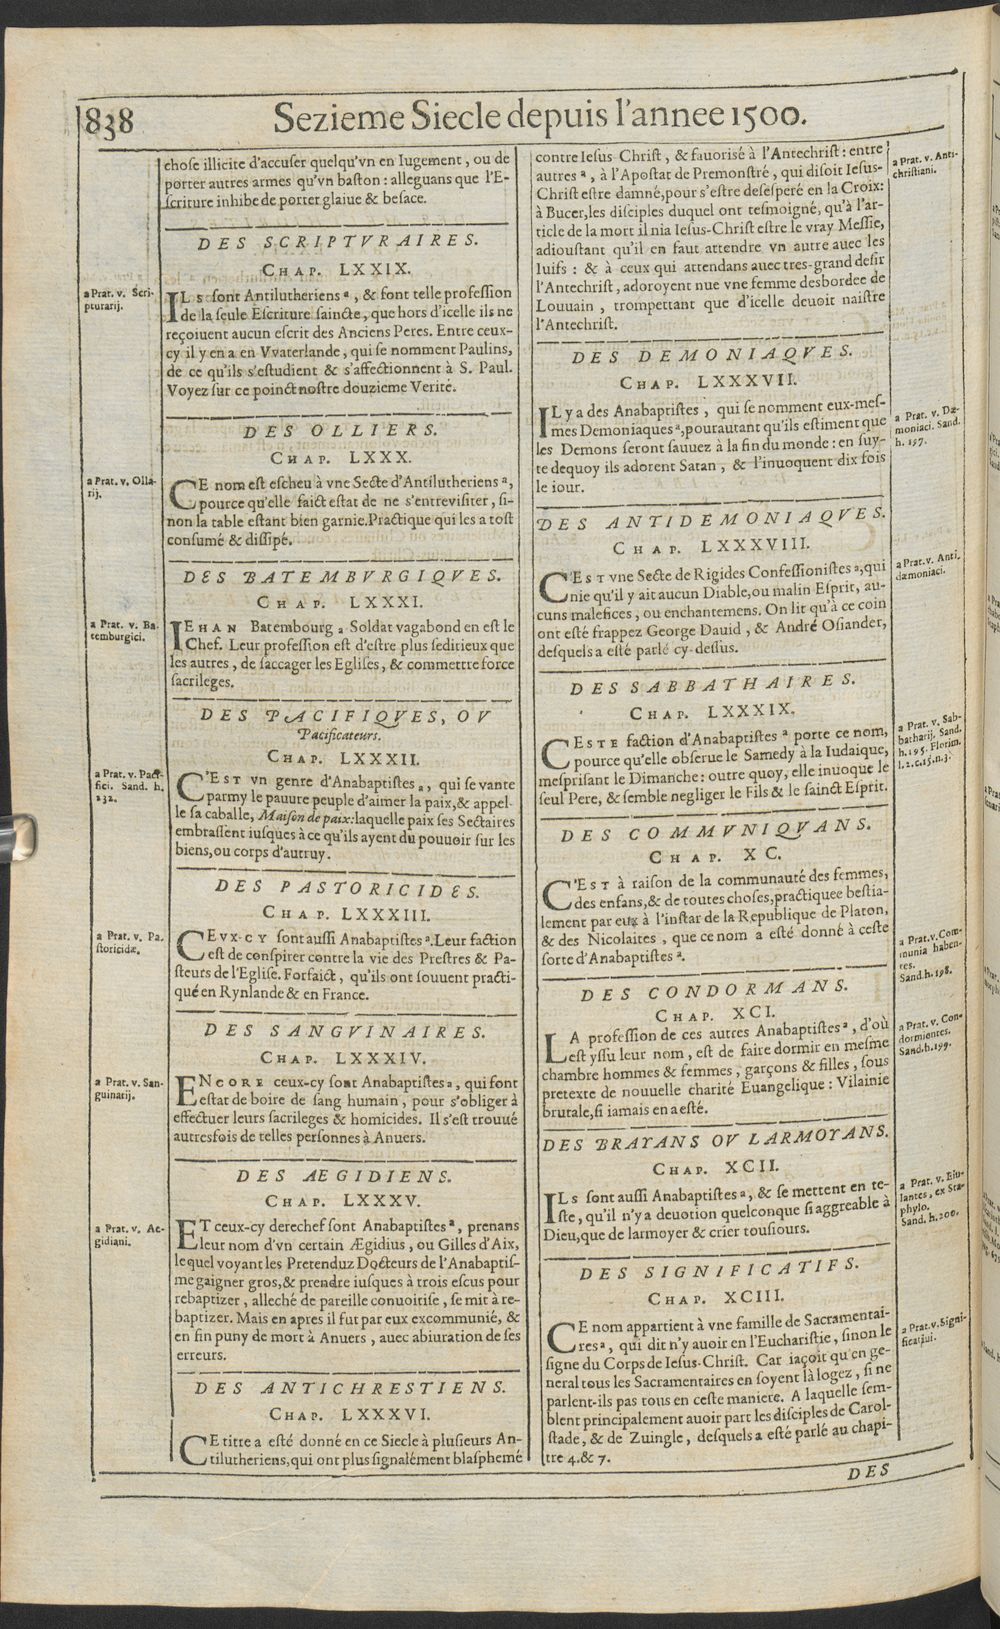 838
Sezieme Siecle depuis l'annee 1500.
chose illicite d'accuser quelqu'vn en Iugement, ou de
porter autres armes qu'vn baston : alleguans que l'E-
scriture inhibe de porter glaiue & besace.
DES SCRIPTVRAIRES.
CHAP. LXXIX.
a Prat. v. Scri-
pturarij.
ILs sont Antilutheriens a, & font telle profession
de la seule Escriture saincte, que hors d'icelle ils ne
reçoiuent aucun escrit des Anciens Peres. Entre ceux-
cy il y en a en Vvaterlande, qui se nomment Paulins,
de ce qu'ils s'estudient & s'affectionnent à S. Paul.
Voyez sur ce poinct nostre douzieme Verité.
DES OLLIERS.
CHAP. LXXX.
a Prat. v. Olla-
rij.
CE nom est escheu à vne Secte d'Antilutheriens a,
pource qu'elle faict estat de ne s'entreuisiter, si-
non la table estant bien garnie. Practique qui les a tost
consumé & dissipé.
DES BATEMBVRGIQVES.
CHAP. LXXXI.
a Prat. v. Ba-
temburgici.
IEHAN Batembourg a Soldat vagabond en est le
Chef. Leur profession est d'estre plus seditieux que
les autres, de saccager les Eglises, & commettre force
sacrileges.
DES PACIFIQVES, OV
Pacificateurs.
CHAP. LXXXII.
a Prat. v. Paci-
fici. Sand. h.
232.
C'EST vn genre d'Anabaptistes a, qui se vante
parmy le pauure peuple d'aimer la paix, & appel-
le sa caballe, Maison de paix: laquelle paix ses Sectaires
embrassent iusques à ce qu'ils ayent du pouuoir sur les
biens, ou corps d'autruy.
DES PASTORICIDES.
CHAP. LXXXIII.
a Prat. v. Pa-
storicidæ.
CEVX-CY sont aussi Anabaptistes a. Leur faction
est de conspirer contre la vie des Prestres & Pa-
steurs de l'Eglise. Forfaict, qu'ils ont souuent practi-
qué en Rynlande & en France.
DES SANGVINAIRES.
CHAP. LXXXIV.
a Prat. v. San-
guinarij.
ENCORE ceux-cy sont Anabaptistes a, qui font
estat de boire de sang humain, pour s'obliger à
effectuer leurs sacrileges & homicides. Il s'est trouué
autresfois de telles personnes à Anuers.
DES AEGIDIENS.
CHAP. LXXXV.
a Prat. v. Ae-
gidiani.
ET ceux-cy derechef sont Anabaptistes a, prenans
leur nom d'vn certain Ægidius, ou Gilles d'Aix,
lequel voyant les Pretenduz Docteurs de l'Anabaptis-
me gaigner gros, & prendre iusques à trois escus pour
rebaptizer, alleché de pareille conuoitise, se mit à re-
baptizer. Mais en apres il fut par eux excommunié, &
en fin puny de mort à Anuers, auec abiuration de ses
erreurs.
DES ANTICHRESTIENS.
CHAP. LXXXVI.
CE titre a esté donné en ce Siecle à plusieurs An-
tilutheriens, qui ont plus signalément blasphemé
contre Iesus-Christ, & fauorisé à l'Antechrist : entre
autres a, à l'Apostat de Premonstré, qui disoit Iesus-
Christ estre damné, pour s'estre desesperé en la Croix:
à Bucer, les disciples duquel ont tesmoigné, qu'à l'ar-
ticle de la mort il nia Iesus-Christ estre le vray Messie,
adioustant qu'il en faut attendre vn autre auec les
Iuifs : & à ceux qui attendans auec tres-grand desir
l'Antechrist, adoroyent nue vne femme desbordee de
Louuain, trompettant que d'icelle deuoit naistre
l'Antechrist.
a Prat. v. Anti-
christiani.
DES DEMONIAQVES.
CHAP. LXXXVII.
IL y a des Anabaptistes, qui se nomment eux-mes-
mes Demoniaques a, pourautant qu'ils estiment que
les Demons seront sauuez à la fin du monde : en suy-
te dequoy ils adorent Satan, & l'inuoquent dix fois
le iour.
a Prat. v. Dæ-
moniaci. Sand.
h. 197.
DES ANTIDEMONIAQVES.
CHAP. LXXXVIII.
C'EST vne Secte de Rigides Confessionistes a, qui
nie qu'il y ait aucun Diable, ou malin Esprit, au-
cuns malefices, ou enchantemens. On lit qu'à ce coin
ont esté frappez George Dauid, & André Osiander,
desquels a esté parlé cy-dessus.
a Prat. v. Anti.
dæmoniaci.
DES SABBATHAIRES.
CHAP. LXXXIX.
CESTE faction d'Anabaptistes a porte ce nom,
pource qu'elle obserue le Samedy à la Iudaique,
mesprisant le Dimanche: outre quoy, elle inuoque le
seul Pere, & semble negliger le Fils & le sainct Esprit.
a Prat. v. Sab-
batharij. Sand.
h. 195. Florim.
l. 2. c. 15. n. 3.
DES COMMVNIQVANS.
CHAP. XC.
C'EST à raison de la communauté des femmes,
des enfans, & de toutes choses, practiquee bestia-
lement par eux à l'instar de la Republique de Platon,
& des Nicolaites, que ce nom a esté donné à ceste
sorte d'Anabaptistes a.
a Prat. v. Com-
munia haben-
tes.
Sand. h. 198.
DES CONDORMANS.
CHAP. XCI.
LA profession de ces autres Anabaptistes a, d'où
est yssu leur nom, est de faire dormir en mesme
chambre hommes & femmes, garçons & filles, sous
pretexte de nouuelle charité Euangelique : Vilainie
brutale, si iamais en a esté.
a Prat. v. Con-
dormientes.
Sand. h. 199.
DES BRAYANS OV LARMOYANS.
CHAP. XCII.
ILs sont aussi Anabaptistes a, & se mettent en te-
ste, qu'il n'y a deuotion quelconque si aggreable à
Dieu, que de larmoyer & crier tousiours.
a Prat. v. Eiu-
lantes, ex Sta-
phylo.
Sand. h. 200.
DES SIGNIFICATIFS.
CHAP. XCIII.
CE nom appartient à vne famille de Sacramentai-
res a, qui dit n'y auoir en l'Eucharistie, sinon le
signe du Corps de Iesus-Christ. Car iaçoit qu'en ge-
neral tous les Sacramentaires en soyent là logez, si ne
parlent-ils pas tous en ceste maniere. A laquelle sem-
blent principalement auoir part les disciples de Carol-
stade, & de Zuingle, desquels a esté parlé au chapi-
tre 4. & 7.
a Prat. v. Signi-
ficatiui.
DES